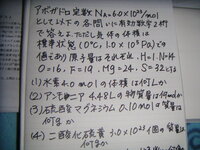 アボガドロ定数 NA=6.0×10²³/mol
として以下の各問いに有効数字2桁
で答えよ。ただし気体の体積は
標準状態(0℃、1.0×10⁵Pa)での
値とあり 原子量はそれぞれ、H=1、N=14
O=16、F=19、Mg=24、S=32とする
(1)水素4.0molの体積は何Lか
(2)アンモニア4.48Lの物質量は何molか
(3)硫酸マグネシウム0.10molの質量は
何gか
(4)二酸化硫黄3.0×10²³個の質量は
何gか